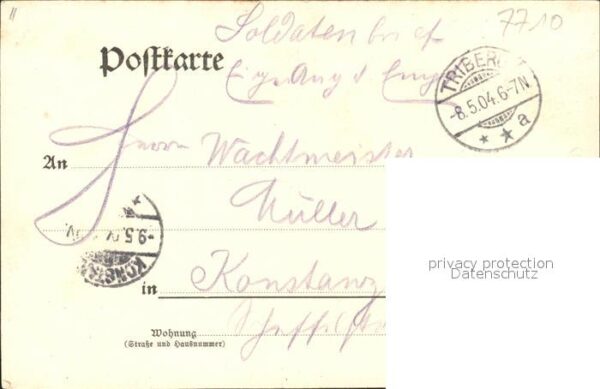 7710
Soldatenbrief
Postkarte
Eig. Ang. d. Empf.
TRIBERG
-8.5.04.6-7N
* * a
An
Herrn Wachtmeister
Müller
-9.5.
KONSTA
in
Konstanz
Wohnung
(Straße und Hausnummer)
privacy protection
Datenschutz